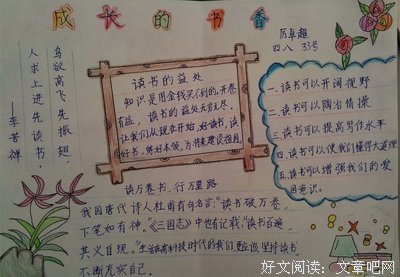 成长的书香
厉卓超
四、八 33号
鸟欲高飞先振翅
人求上进先读书
——李苦禅
读书的益处
知识是用金钱买不到的,开卷
有益。读书的益处无穷无尽。
让我们从现在开始,好读书,读
好书,练好本领,为将来建设祖国。
一、读书可以开阔视野
二、读书可以陶冶情操
三、读书可以提高写作水平
四、读书可以使我们懂得大道理
五、读书可以增强我们的爱
国意识。
读万卷书,行万里路
我国唐代诗人杜甫有句名言:"读书破万卷,
下笔如有神。"《三国志》中也有记载:"读书百遍,
其义自现。"生活在高科技时代的我们更应该坚持读书
不断充实自己。
好文阅读:文章吧网